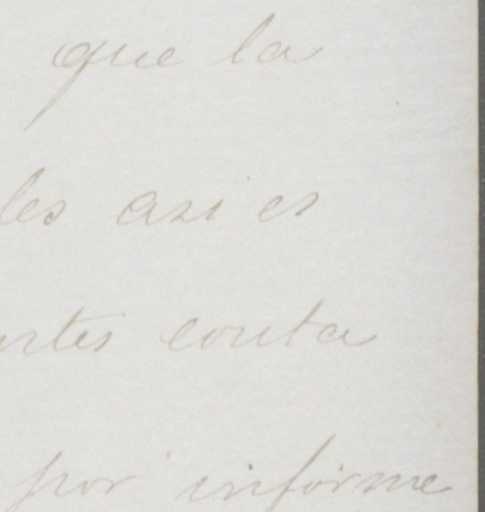 que la
les asi es
rtes conta
por informe